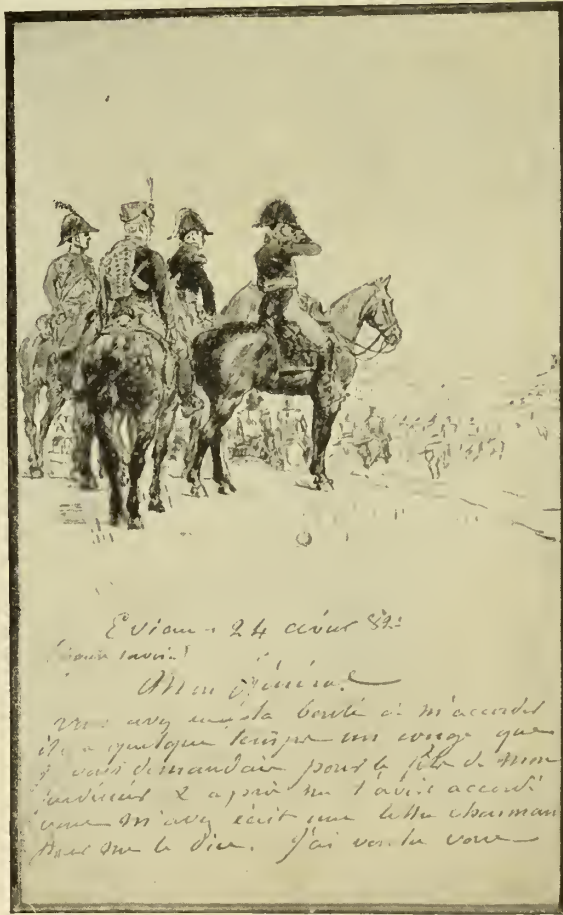 Evian. 24 82
Mon Général
vous avez la bonté de m'accorder
il y a quelque temps un congé que
vous demandais pour la fête de mon
& après me l'avoir accordé
vous m'avez écrit une lettre
pour me le dire. J'ai voulu vous